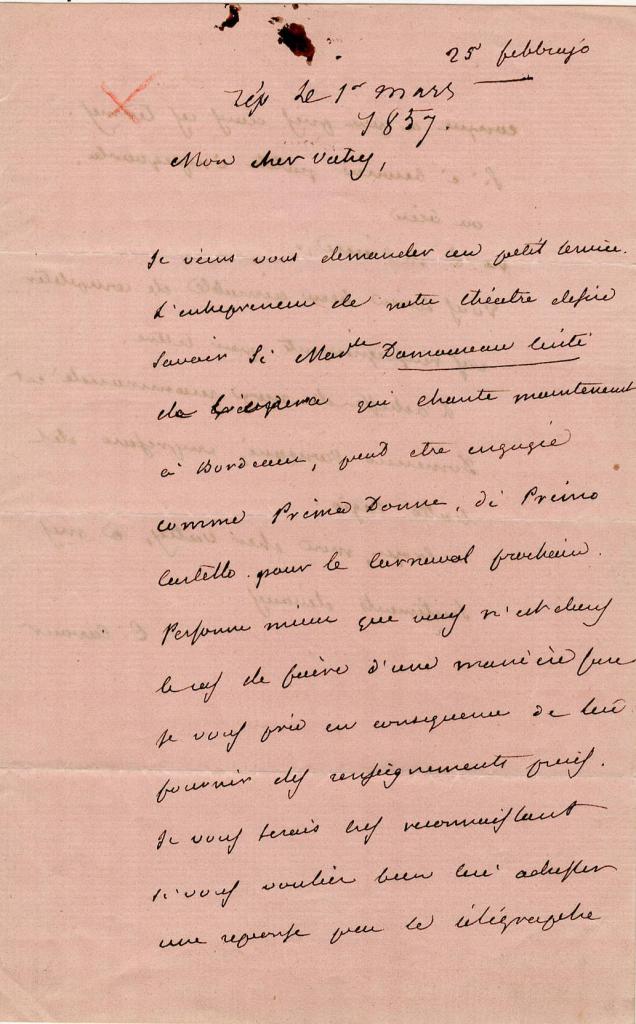 25 febbrajo
rép le 1er mars
1857.
Mon cher Vatry,
Je viens vous demander un petit service.
L'entrepreneur de notre théatre desire
savoir si Madlle Damoreau
qui chante maintenant
à Bordeaux, peut etre engagée
comme Prima Donna, di Primo
Cartello pour le Carneval prochain.
Personne mieux que vous n'est dans
le cas de faire d'une manière
je vous prie en consequence de
fournir des renseignements precis.
Je vous serais très reconnaissant
si vous vouliez bien lui adresser
une reponse par le télégraphe